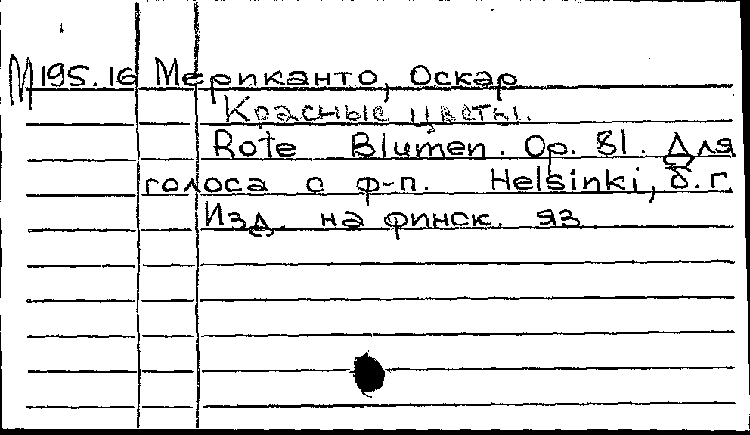 М195.16 Мериканто, Оскар
Красные цветы.
Rote Blumen. Op. 81. Для
голоса с ф-п. Helsinki, б.г.
Изд. на финск. яз.